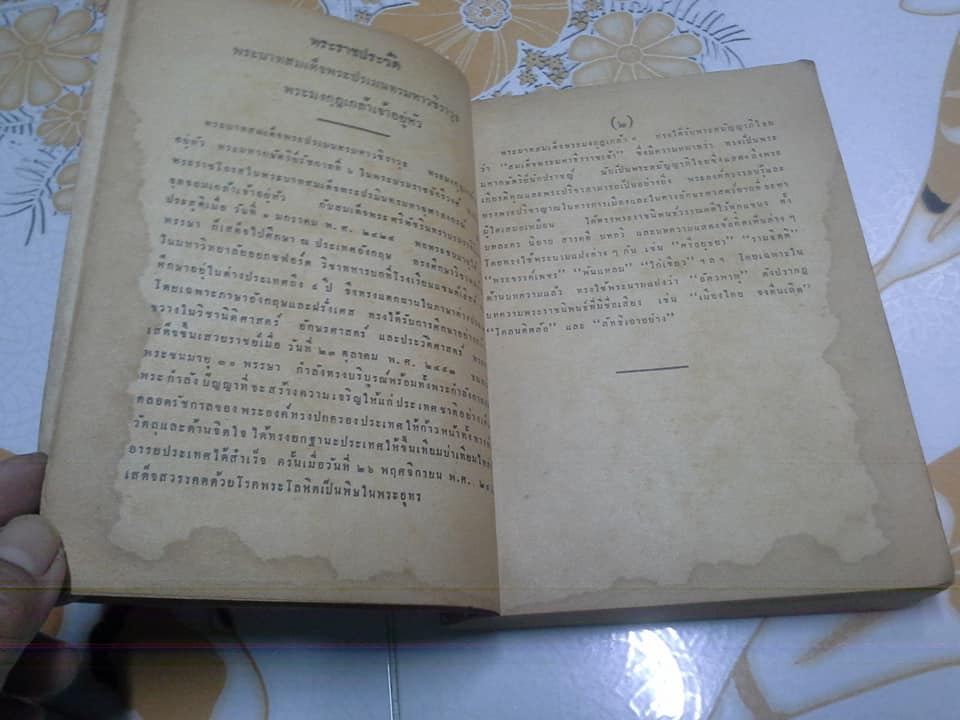 พระราชประวัติ
พระบาทสมเด็จพระปรเมนทรมหาวชิราวุธ
พระมงกุฎเกล้าเจ้าอยู่หัว
พระบาทสมเด็จพระปรเมนทรมหาวชิราวุธ
อยู่หัว พระมหากษัตริย์รัชกาลที่ ๖ ในพระบรมราชจักรีวงศ์
พระราชโอรสในพระบาทสมเด็จพระปรมินทรมหาจุฬาลงกรณ์
จุลจอมเกล้าเจ้าอยู่หัว กับสมเด็จพระศรีพัชรินทราบรมราชินีนาถ
ประสูติเมื่อ วันที่ ๑ มกราคม พ.ศ. ๒๔๒๔
พรรษา ก็เสด็จไปศึกษา ณ ประเทศอังกฤษ ทรงศึกษาวิชา
ในมหาวิทยาลัยออกซฟอร์ด วิชาทหารบกที่โรงเรียนแซนด์เฮิสต์
ศึกษาอยู่ในต่างประเทศถึง ๙ ปี จึงทรงแตกฉานในภาษาต่างประเทศ
โดยเฉพาะภาษาอังกฤษและฝรั่งเศส ทรงได้รับการศึกษาอย่าง
ขวางในวิชานิติศาสตร์ อักษรศาสตร์ และประวัติศาสตร์
เสด็จขึ้นเสวยราชย์เมื่อ วันที่ ๒๓ ตุลาคม พ.ศ. ๒๔๕๓
พระชนมายุ ๓๐ พรรษา กำลังทรงบริบูรณ์พร้อมทั้งพระกำลังกาย
พระกำลังปัญญาที่จะสร้างความเจริญให้แก่ประเทศชาติอย่าง
ตลอดรัชกาลของพระองค์ทรงปกครองประเทศให้ก้าวหน้าทั้ง
วัตถุและด้านจิตใจ ได้ทรงยกฐานะประเทศให้ขึ้นเทียมบ่าเทียมไหล่
อารยประเทศได้สำเร็จ ครั้นเมื่อวันที่ ๒๖ พฤศจิกายน พ.ศ.
เสด็จสวรรคตด้วยโรคพระโลหิตเป็นพิษในพระอุทร
(๒)
พระบาทสมเด็จพระมงกุฎเกล้า ฯ ทรงได้รับพระสมัญญาภิไธย
ว่า “สมเด็จพระมหาธีรราชเจ้า” ซึ่งมีความหมายว่า ทรงเป็นพระ
มหากษัตริย์นักปราชญ์ นับเป็นพระสมัญญาภิไธยซึ่งแสดงถึงพระ
เกียรติคุณและพระปรีชาสามารถเป็นอย่างยิ่ง พระองค์ทรงรอบรู้และ
ทรงพระปรีชาญาณในทางการเมืองและในทางอักษรศาสตร์
ผู้ใดเสมอเหมือน ได้ทรงพระราชนิพนธ์วรรณคดีไว้ทุกแขนง ทั้ง
บทละคร นิยาย สารคดี บทกวี และบทความแสดงข้อคิดเห็นต่าง ๆ
โดยทรงใช้พระนามแฝงต่าง ๆ กัน เช่น “ศรีอยุธยา” “รามจิตติ”
“พระขรรค์เพชร” “พันแหลม” “ไก่เขียว” ฯลฯ โดยเฉพาะใน
ด้านบทความแล้ว ทรงใช้พระนามแฝงว่า “อัศวพาหุ” ดังปรากฏ
บทความพระราชนิพนธ์ที่มีชื่อเสียง เช่น “เมืองไทย จงตื่นเถิด”
“โคลนติดล้อ” และ “ลัทธิเอาอย่าง”